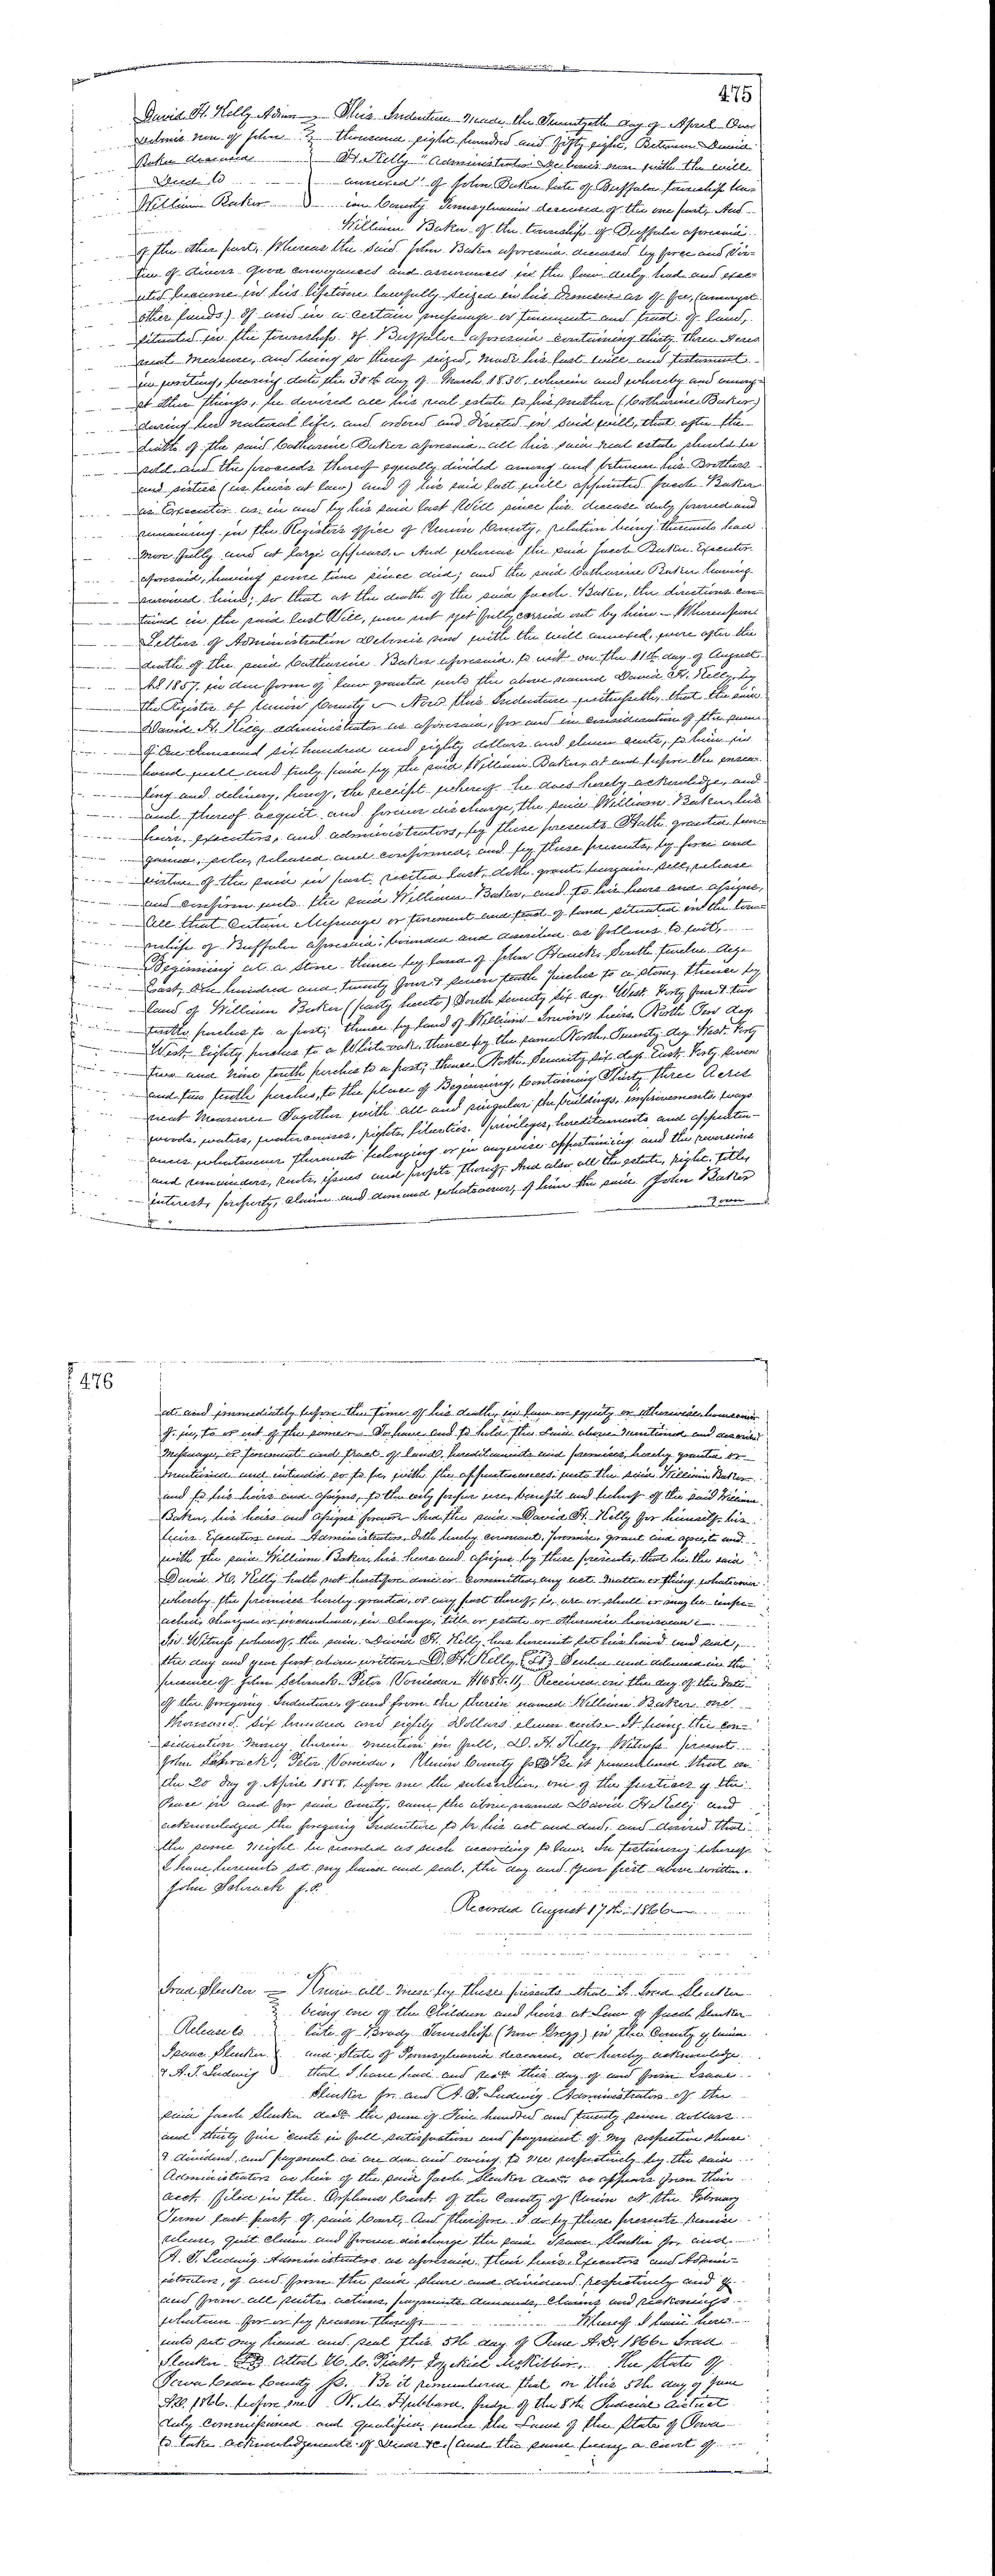 475
David H. Kelly Admr This Indenture made the Twentyeth day of April One
debonis non of John thousand eight hundred and fifty eight, Between David
Baker deceased H. Kelly "Administrator De bonis non with the will
Deed to annexed" of John Baker late of Buffaloe township Un=
William Baker ion County Pennsylvania deceased of the one part, And
William Baker of the township of Buffaloe aforesaid
of the other part, Whereas the said John Baker aforesaid deceased by force and vir=
tue of divers good conveyances and assurances in the law duly had and exec=
uted became in his lifetime lawfully seized in his Demesne as of fee, (amongst
other lands) of and in a certain messuage or tenement and tract of land,
situated in the township of Buffaloe aforesaid containing thirty three Acres
neat measure, and being so thereof seized, made his last will and testament
in writing, bearing date the 30th day of March 1830, wherein and whereby and among=
st other things, he devised all his real estate to his mother (Catharine Baker)
during her natural life, and ordered and directed in said will, that after the
death of the said Catharine Baker aforesaid all his said real estate should be
sold and the proceeds thereof equally divided among and between his Brothers
and sisters (as heirs at law) and of his said last will appointed Jacob Baker
as Executor as in and by his said last Will since his decease duly proved and
remaining in the Registers office of Union County, relation being thereunto had
more fully and at large appears. And whereas the said Jacob Baker Executor
aforesaid, having some time since died; and the said Catharine Baker having
survived him; so that at the death of the said Jacob Baker, the directions con=
tained in the said last Will, were not yet fully carried out by him – Whereupon
Letters of Administration debonis non with the will annexed, were after the
death of the said Catharine Baker aforesaid, to wit on the 11th day of August
AD 1857, in due form of law granted unto the above named David H. Kelly, by
the Register of Union County – Now this Indenture witnesseth, that the said
David H. Kelly administrator as aforesaid, for and in consideration of the sum
of One thousand six hundred and eighty dollars and eleven cents, to him in
hand well and truly paid by the said William Baker, at and before the ensea=
ling and delivery, hereof, the receipt whereof he does hereby acknowledge, and
and thereof acquit and forever discharge, the said William Baker, his
heirs, executors, and administrators, by these presents Hath granted bar=
gained, sold, released and confirmed, and by these presents, by force and
virtue of the said in part recited last, doth grant, bargain sell, release
and confirm unto the said William Baker, and to his heirs and assigns,
All that Certain Messuage or tenement and tract of land situated in the tow=
nship of Buffaloe aforesaid; bounded and described as follows to wit,
Beginning at a stone thence by land of John Hauck, South twelve deg.
East, One hundred and twenty four & seven tenth perches to a stone, thence by
land of William Baker (party hereto) South Seventy six deg. West Forty four & two
tenths perches to a post; thence by land of William Irwin's heirs, North Ten deg.
West Eighty perches to a White oak, thence by the same North, Twenty deg. West Forty
two and Nine tenth perches to a post; thence North Seventy six deg. East Forty seven
and two tenth perches, to the place of Beginning, Containing Thirty three Acres
neat Measure – Together with all and singular the buildings, improvements, ways
woods, waters, watercourses, rights, liberties, privileges, hereditaments and appurten=
ances whatsoever thereunto belonging or in anywise appertaining and the reversions
and remainders, rents, issues and profits thereof, And also all the estate, right, title,
interest, property, claim and demand whatsoever, of him the said John Baker
over
476
at and immediately before the time of his death, in law or equity or otherwise howsoever
of, in, to or out of the same – To have and to hold the said above mentioned and described
Messuage, or tenement and tract of land, hereditaments and premises, hereby granted or
mentioned and intended so to be, with the appurtenances unto the said William Baker
and to his heirs and assigns, to the only proper use, benefit and behoof of the said William
Baker, his heirs and assigns forever – And the said David H. Kelly for himself, his
heirs Executors and Administrators, doth hereby covenant, promise, grant and agree, to and
with the said William Baker, his heirs and assigns by these presents, that he the said
David H. Kelly hath not heretofore done or committed, any act matter or thing whatsoever
whereby the premises hereby granted, or any part thereof, is, are or shall or may be impe=
ached, charged or incumbered, in Charge, title or estate or otherwise howsoever
In Witness whereof, the said David H. Kelly has hereunto set his hand and seal,
the day and year first above written. D. H. Kelly {LS} Sealed and delivered in the
presence of John Schrack Peter Voneida $1680.11, Received on the day of the date
of the foregoing Indenture, of and from the therein named William Baker one
thousand six hundred and eighty Dollars eleven cents – It being the con=
sideration money therein mention in full, D. H. Kelly, Witness present
John Schrack, Peter Voneida, Union County ss Be it remembered that on
the 20 day of April 1858 before me the subscriber, one of the Justices of the
Peace in and for said County, came the above named David H Kelly and
acknowledged the foregoing Indenture to be his act and deed, and desired that
the same might be recorded as such according to law. In testimony whereof
I have hereunto set my hand and seal, the day and year first above written.
John Schrack J. P.
Recorded August 17th 1866
Irad Slenker Know all men by these presents that I Irad Slenker
being one of the Children and heirs at Law of Jacob Slenker
Release to late of Brady Township (Now Gregg) in the County of Union
Isaac Slenker and State of Pennsylvania deceased, do hereby acknowledge
& A. T. Ludwig that I have had and recd this day of and from Isaac
Slenker Jr. and A. T. Ludwig Administrators of the
said Jacob Slenker decd the sum of Five hundred and twenty seven dollars
and thirty five cents in full satisfaction and payment of my respective share
& dividend, and payment as are due and owing to me respectively by the said
Administrators as heir of the said Jacob Slenker decd as appears from their
acct. filed in the Orphans Court of the County of Union at the February
Term last past, of said Court, And therefore I do by these presents Remise
release, quit claim and forever discharge the said Isaac Slenker Jr. and
A. T. Ludwig Administrators as aforesaid, their heirs Executors and Admin=
istrators, of and from the said share and dividend respectively and of
and from all suits, actions, payments demands, claims and reckonings
whatsoever for or by reason thereof Whereof I have here=
unto set my hand and seal this 5th day of June A.D. 1866 Irad
Slenker LS Attest H. C. Piatt, Ezekiel McKibbin, The State of
Iowa Cedar County ss. Be it remembered that on this 5th day of June
A.D. 1866. before me N. M. Hubbard, Judge of the 8th Judicial district
duly commissioned and qualified, under the Laws of the State of Iowa
to take acknowledgements of Deeds &c. (and the same being a Court of